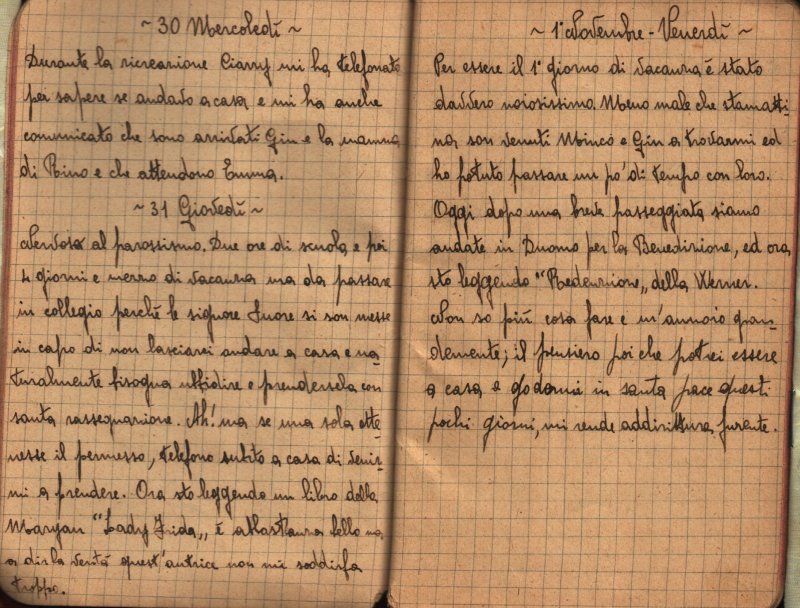 ~ 30 Mercoledì ~
Durante la ricreazione Ciassy mi ha telefonato
per sapere se andavo a casa e mi ha anche
comunicato che sono arrivati Gin e la mamma
di Rino e che attendono Emma.
~ 31 Giovedì ~
Nervosa al parossismo. Due ore di scuola e poi
4 giorni e mezzo di vacanza ma da passare
in collegio perchè le signore Suore si son messe
in capo di non lasciarci andare a casa e na-
turalmente bisogna ubbidire e prendersela con
santa rassegnazione. Ah! ma se una sola otte-
nesse il permesso, telefono subito a casa di venir-
mi a prendere. Ora sto leggendo un libro della
Maryan "Lady Frida„ è abbastanza bello ma
a dir la verità quest'autrice non mi soddisfa
troppo.
~ 1° Novembre - Venerdì ~
Per essere il 1° giorno di vacanza è stato
davvero noiosissimo. Meno male che stamatti-
na son venuti Minco e Gin a trovarmi ed
ho potuto passare un po' di tempo con loro.
Oggi dopo una breve passeggiata siamo
andate in Duomo per la Benedizione, ed ora
sto leggendo "Redenzione„ della Werner.
Non so più cosa fare e m'annoio gran-
demente; il pensiero poi che potrei essere
a casa e godermi in santa pace questi
pochi giorni, mi rende addirittura furente.